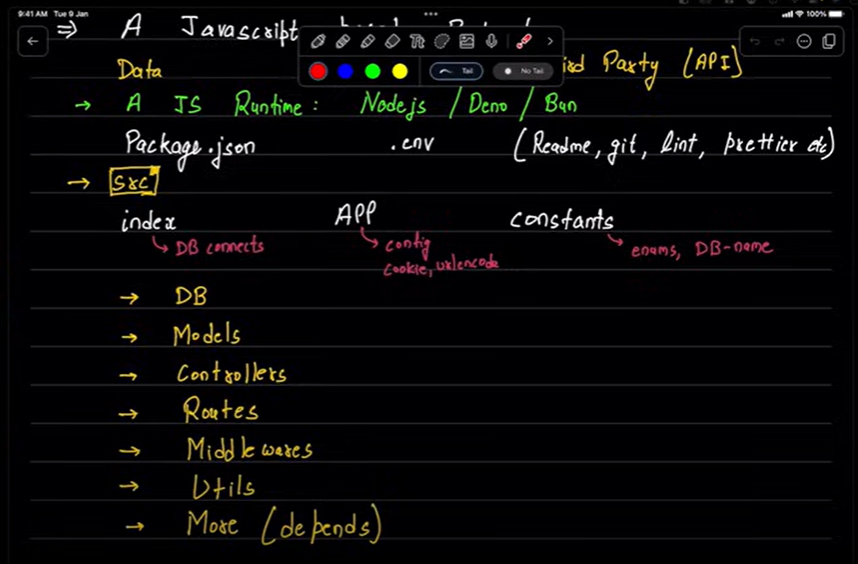 9:41 AM Tue 9 Jan
100%
⇒ A Javascript
Tail No Tail
Data Party (API)
→ A JS Runtime: Nodejs / Deno / Bun
Package.json .env (Readme, git, lint, prettier etc)
→ src
index APP constants
DB connects config enums, DB-name
cookie, urlencode
→ DB
→ Models
→ Controllers
→ Routes
→ Middlewares
→ Utils
→ More (depends)